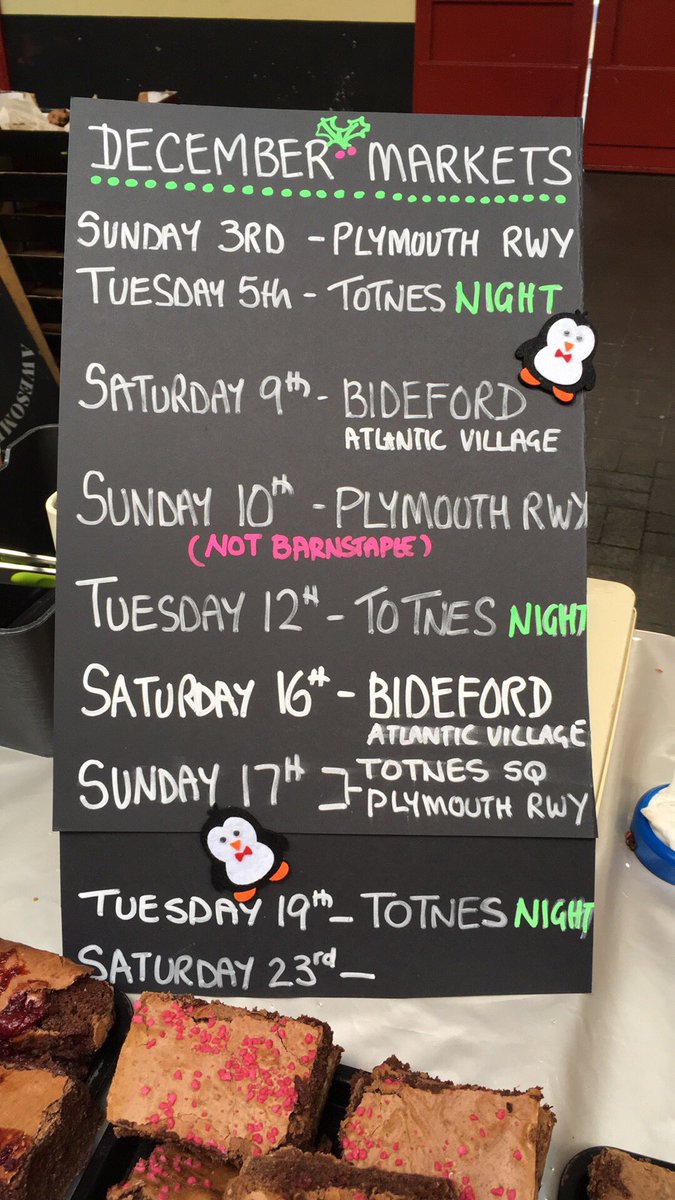 DECEMBER MARKETS
SUNDAY 3RD - PLYMOUTH RWY
TUESDAY 5th - TOTNES NIGHT
SATURDAY 9th - BIDEFORD
ATLANTIC VILLAGE
SUNDAY 10th - PLYMOUTH RWY
(NOT BARNSTAPLE)
TUESDAY 12th - TOTNES NIGHT
SATURDAY 16th - BIDEFORD
ATLANTIC VILLAGE
SUNDAY 17th - TOTNES SQ
PLYMOUTH RWY
TUESDAY 19th - TOTNES NIGHT
SATURDAY 23rd -